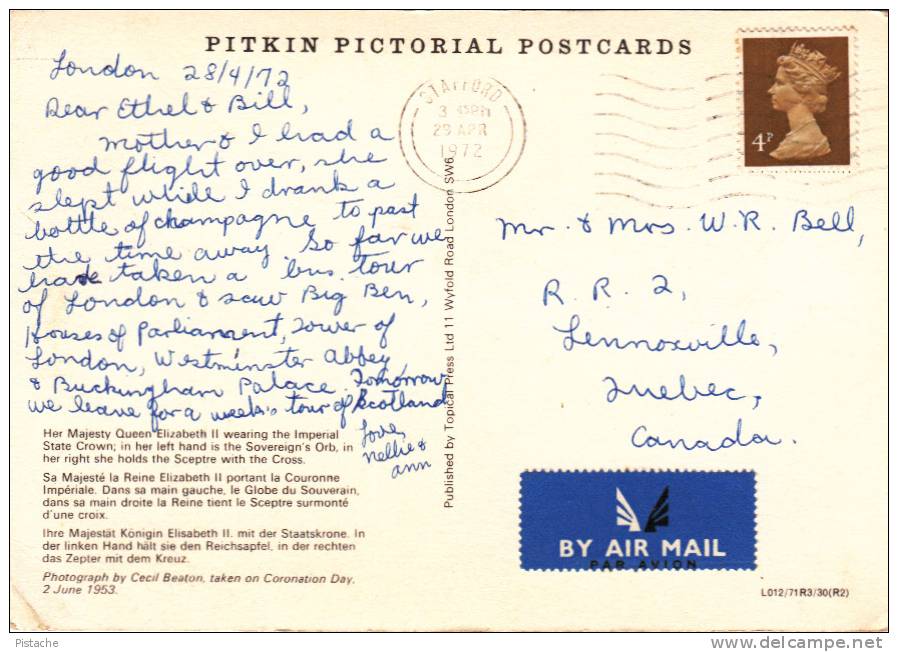 PITKIN PICTORIAL POSTCARDS
London 28/4/72
Dear Ethel & Bill,
Mother & I had a
good flight over, she
slept while I drank a
bottle of champagne to past
the time away. So far we
have taken a bus tour
of London & saw Big Ben,
Houses of Parliament, Tower of
London, Westminster Abbey
& Buckingham Palace. Tomorrow
we leave for a week's tour of Scotland
Love,
Nellie &
Ann
Her Majesty Queen Elizabeth II wearing the Imperial
State Crown; in her left hand is the Sovereign's Orb, in
her right she holds the Sceptre with the Cross.
Sa Majesté la Reine Elizabeth II portant la Couronne
Impériale. Dans sa main gauche, le Globe du Souverain,
dans sa main droite la Reine tient le Sceptre surmonté
d'une croix.
Ihre Majestät Königin Elisabeth II. mit der Staatskrone. In
der linken Hand hält sie den Reichsapfel, in der rechten
das Zepter mit dem Kreuz.
Photograph by Cecil Beaton, taken on Coronation Day,
2 June 1953.
Published by Topical Press Ltd 11 Wyfold Road London SW6
STAFFORD
29 APR
1972
4P
Mr. & Mrs. W. R. Bell,
R. R. 2,
Lennoxville,
Quebec,
Canada.
BY AIR MAIL
PAR AVION
L012/71R3/30(R2)
Pistache
www.delcampe.net